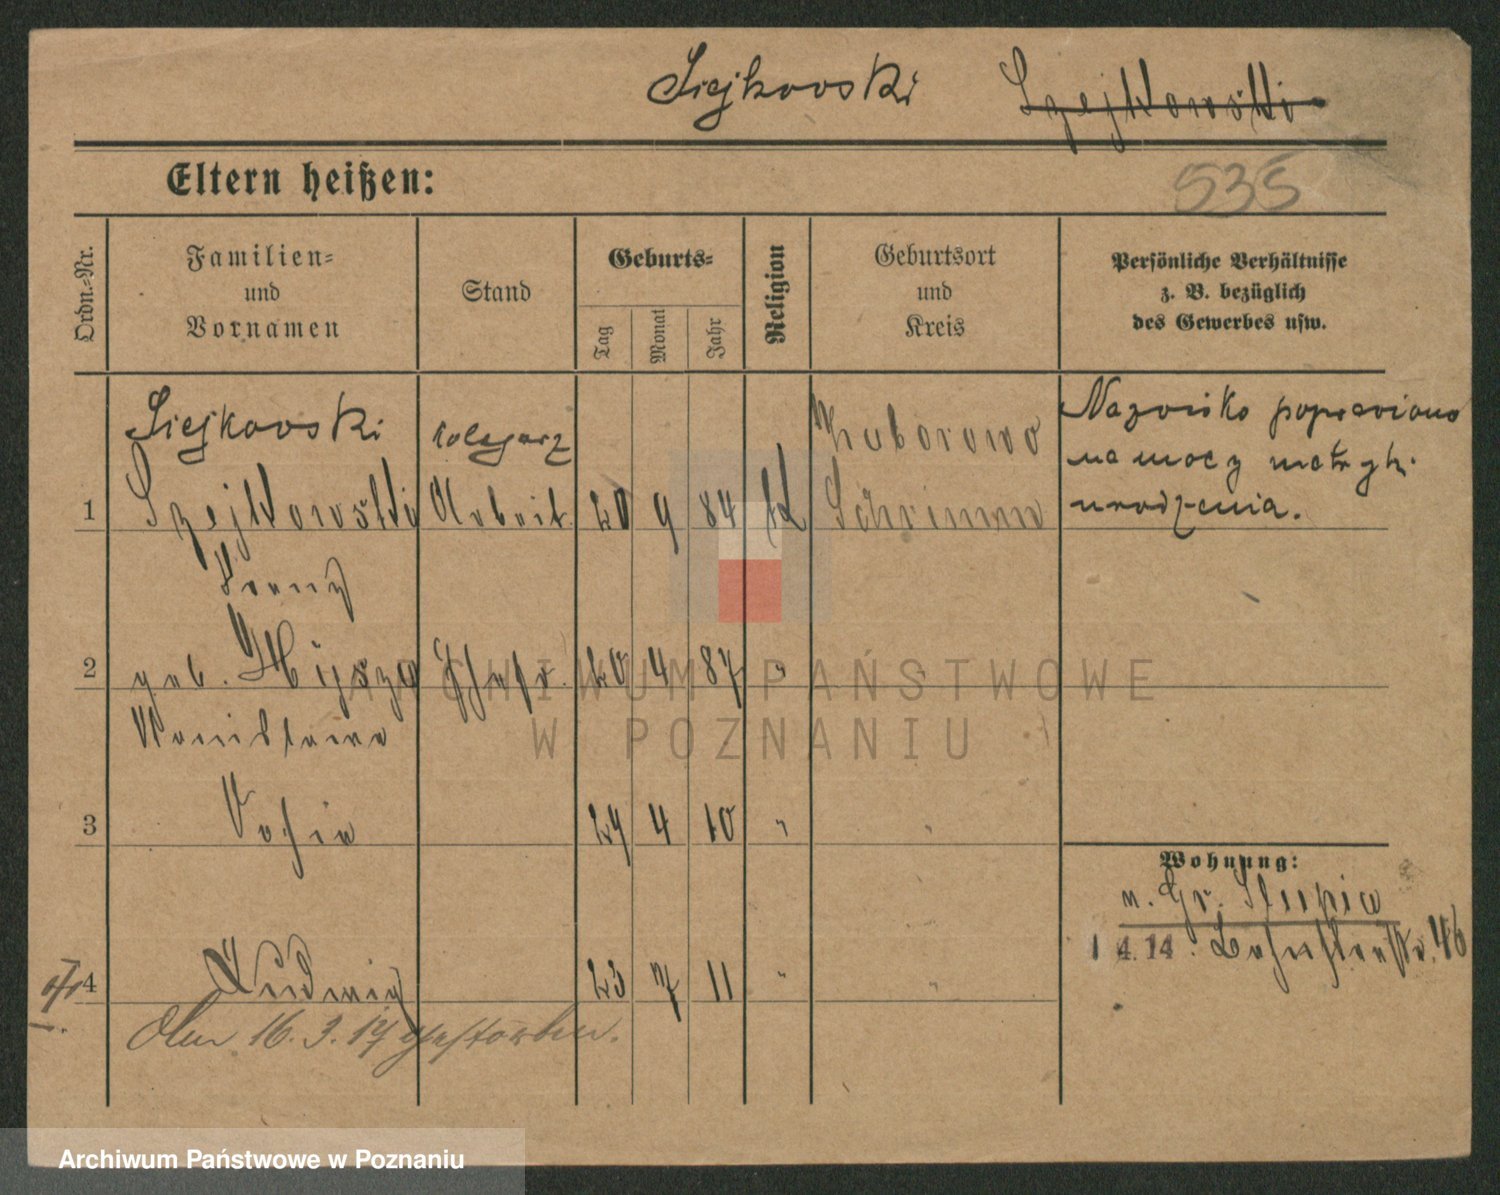 Siejkowski Szejkowski
535
Eltern heißen:
Ordn.-Nr.
Familien- und Vornamen
Stand
Geburts-
Tag
Monat
Jahr
Religion
Geburtsort und Kreis
Persönliche Verhältnisse
z. B. bezüglich
des Gewerbes usw.
Siejkowski
Szejkowski
Franz
1
Arbeit.
20 9 84
K
Schrimm
Nazwisko poprawiono
na mocy metryk.
urodzenia.
2
geb.
20 4 87 "
Stanislawa
3
Sofie
24 4 10 " "
4
Ludwig
23 7 11 " "
Am 16. 3. 17 gestorben.
Wohnung:
n. Gr. Slupia
1 4.14. 46
ARCHIWUM PAŃSTWOWE
W POZNANIU
Archiwum Państwowe w Poznaniu